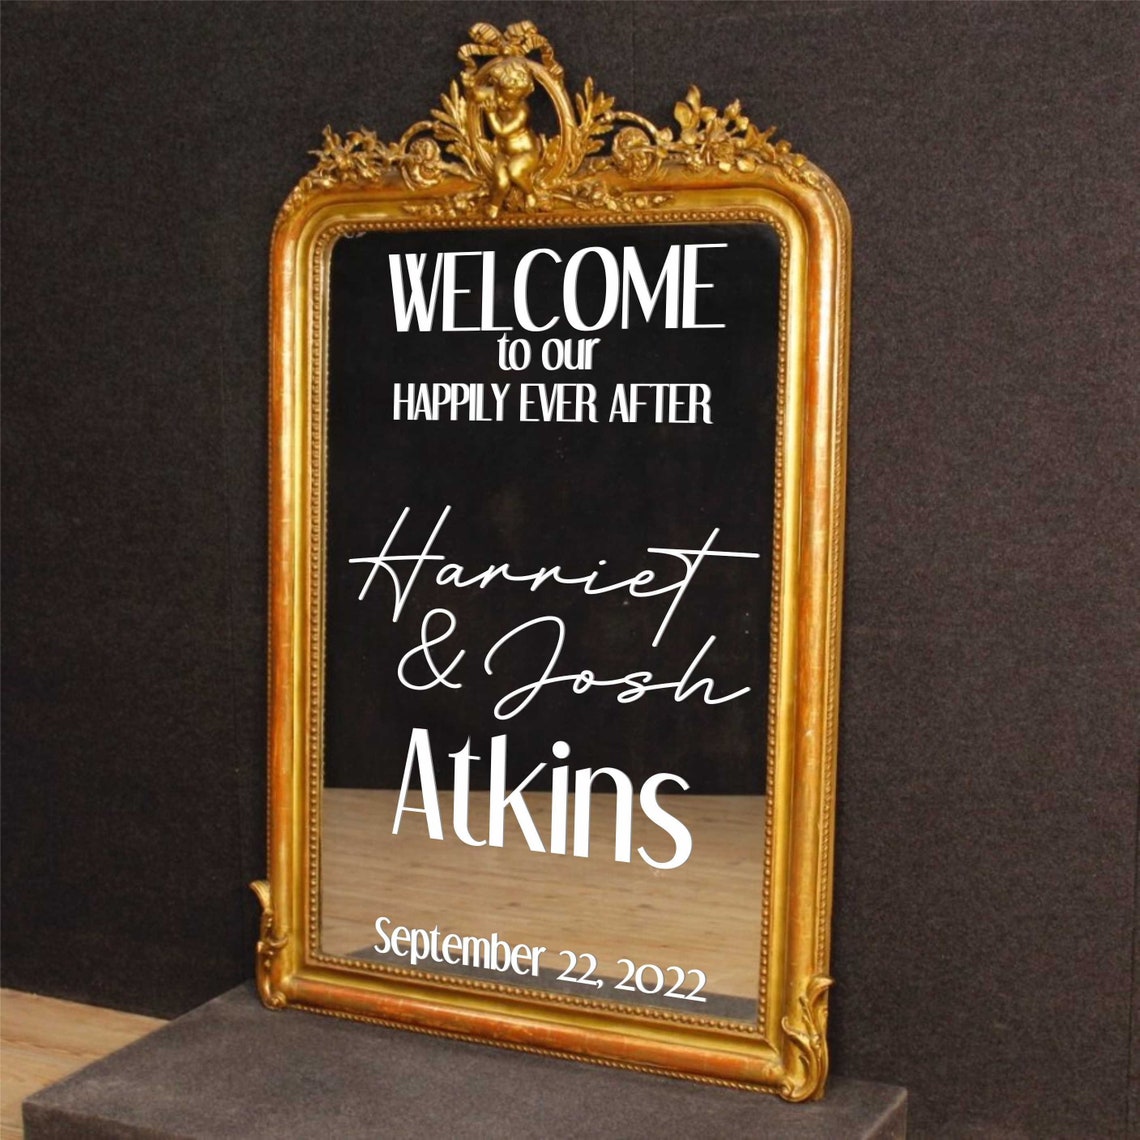 WELCOME
to our
HAPPILY EVER AFTER
Harriet
& Josh
Atkins
September 22, 2022